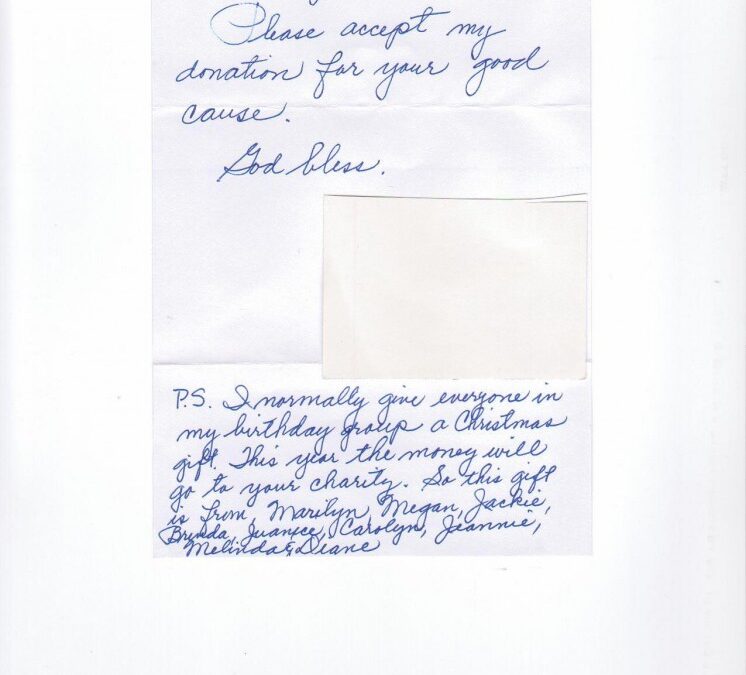 Please accept my
donation for your good
cause.
God bless.
P.S. I normally give everyone in
my birthday group a Christmas
gift. This year the money will
go to your charity. So this gift
is from Marilyn, Megan, Jackie,
Brenda, Juanice, Carolyn, Jeannie,
Melinda & Diane